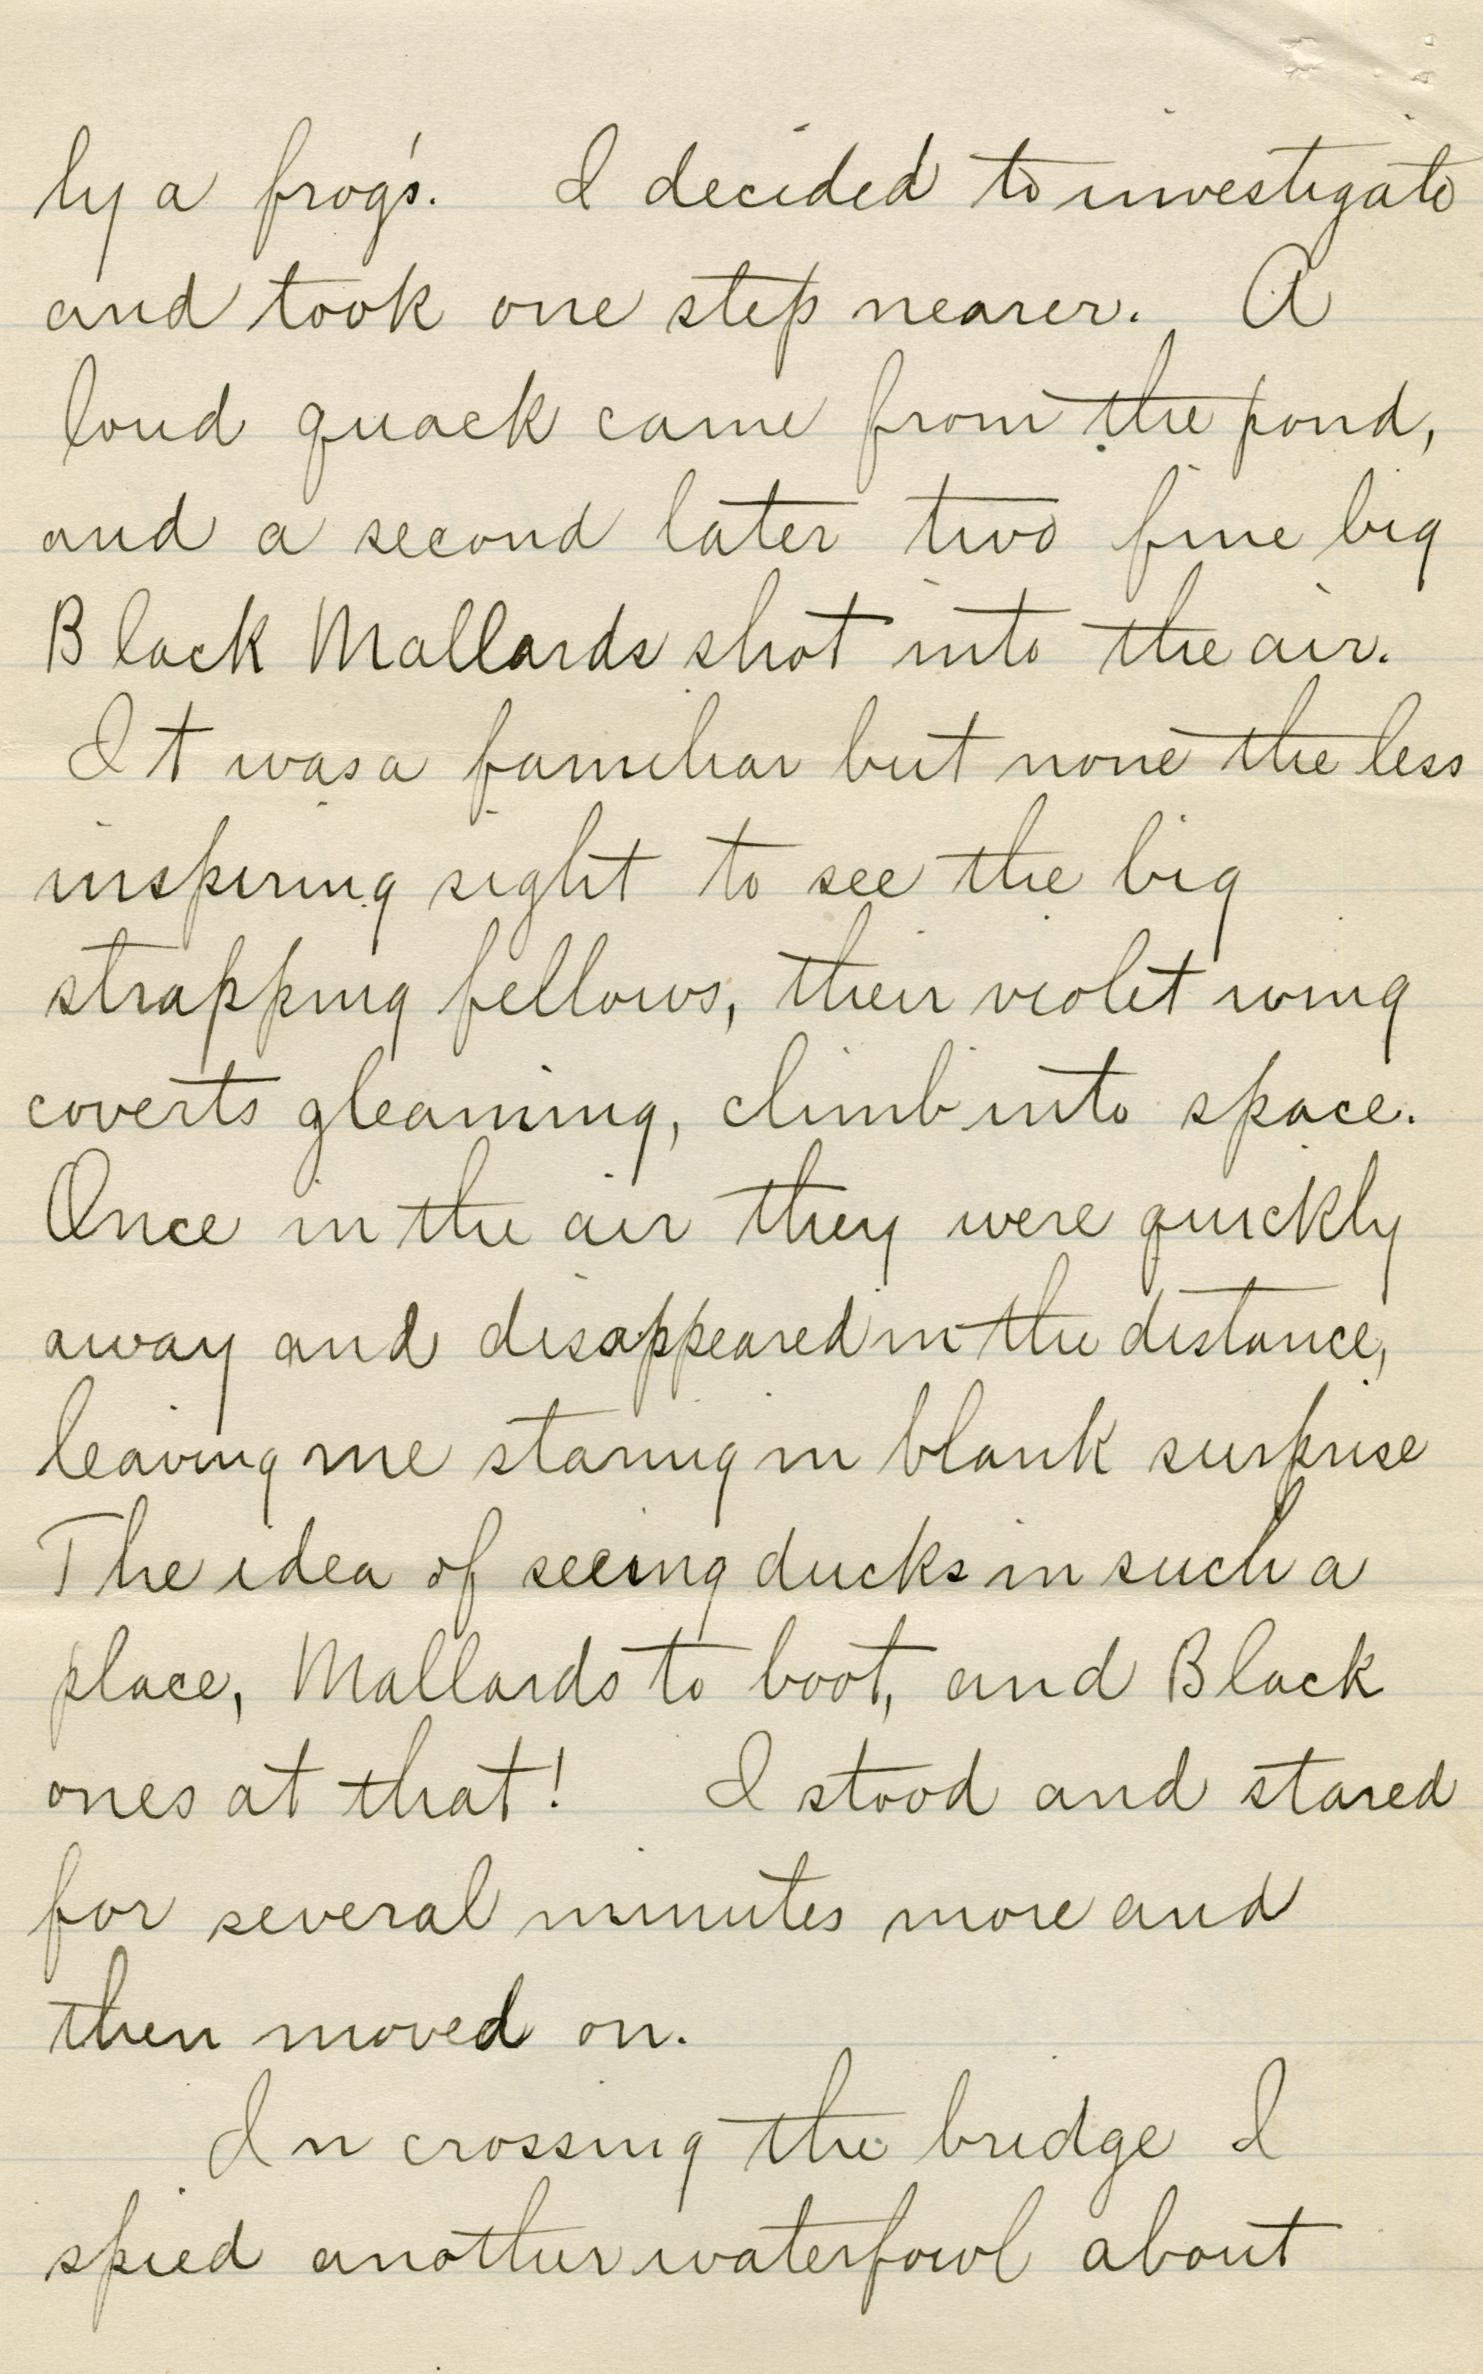 ly a frog's. I decided to investigate
and took one step nearer. A
loud quack came from the pond,
and a second later two fine big
Black Mallards shot into the air.
It was a familiar but none the less
inspiring sight to see the big
strapping fellows, their violet wing
coverts gleaming, climb into space.
Once in the air they were quickly
away and disappeared in the distance,
leaving me staring in blank surprise
The idea of seeing ducks in such a
place, Mallards to boot, and Black
ones at that! I stood and stared
for several minutes more and
then moved on.
In crossing the bridge I
spied another waterfowl about